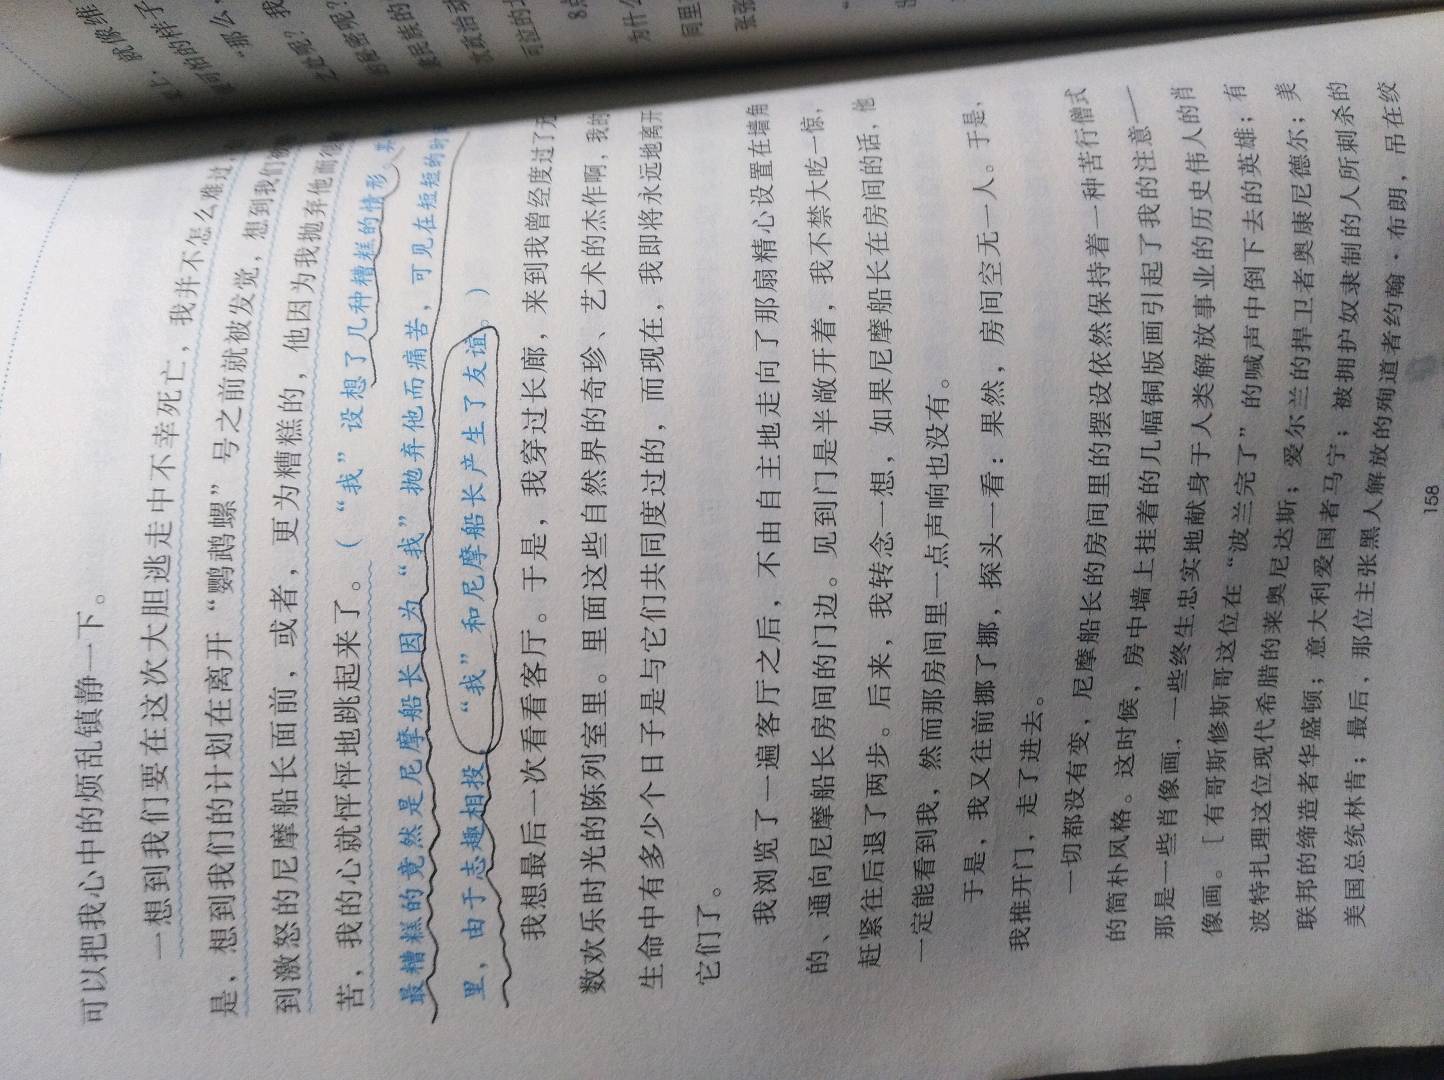 可以把我心中的烦乱镇静一下。
一想到我们要在这次大胆逃走中不幸死亡，我并不怎么难过，
是，想到我们的计划在离开“鹦鹉螺”号之前就被发觉，想到我们
到激怒的尼摩船长面前，或者，更为糟糕的，他因为我抛弃他而
苦，我的心就怦怦地跳起来了。（“我”设想了几种糟糕的情形，
最糟糕的竟然是尼摩船长因为“我”抛弃他而痛苦，可见在短短的时
里，由于志趣相投，“我”和尼摩船长产生了友谊。）
我想最后一次看看客厅。于是，我穿过长廊，来到我曾经度过了无
数欢乐时光的陈列室里。里面这些自然界的奇珍、艺术的杰作啊，我的
生命中有多少个日子是与它们共同度过的，而现在，我即将永远地离开
它们了。
我浏览了一遍客厅之后，不由自主地走向了那扇精心设置在墙角
的、通向尼摩船长房间的门边。见到门是半敞开着，我不禁大吃一惊，
赶紧往后退了两步。后来，我转念一想，如果尼摩船长在房间的话，他
一定能看到我，然而那房间里一点声响也没有。
于是，我又往前挪了挪，探头一看：果然，房间空无一人。于是，
我推开门，走了进去。
一切都没有变，尼摩船长的房间里的摆设依然保持着一种苦行僧式
的简朴风格。这时候，房中墙上挂着的几幅铜版画引起了我的注意——
那是一些肖像画，一些终生忠实地献身于人类解放事业的历史伟人的肖
像画。［有哥斯修斯哥这位在“波兰完了”的喊声中倒下去的英雄；有
波特扎理这位现代希腊的莱奥尼达斯；爱尔兰的捍卫者奥康尼德尔；美
联邦的缔造者华盛顿；意大利爱国者马宁；被拥护奴隶制的人所刺杀的
美国总统林肯；最后，那位主张黑人解放的殉道者约翰·布朗，吊在绞
158